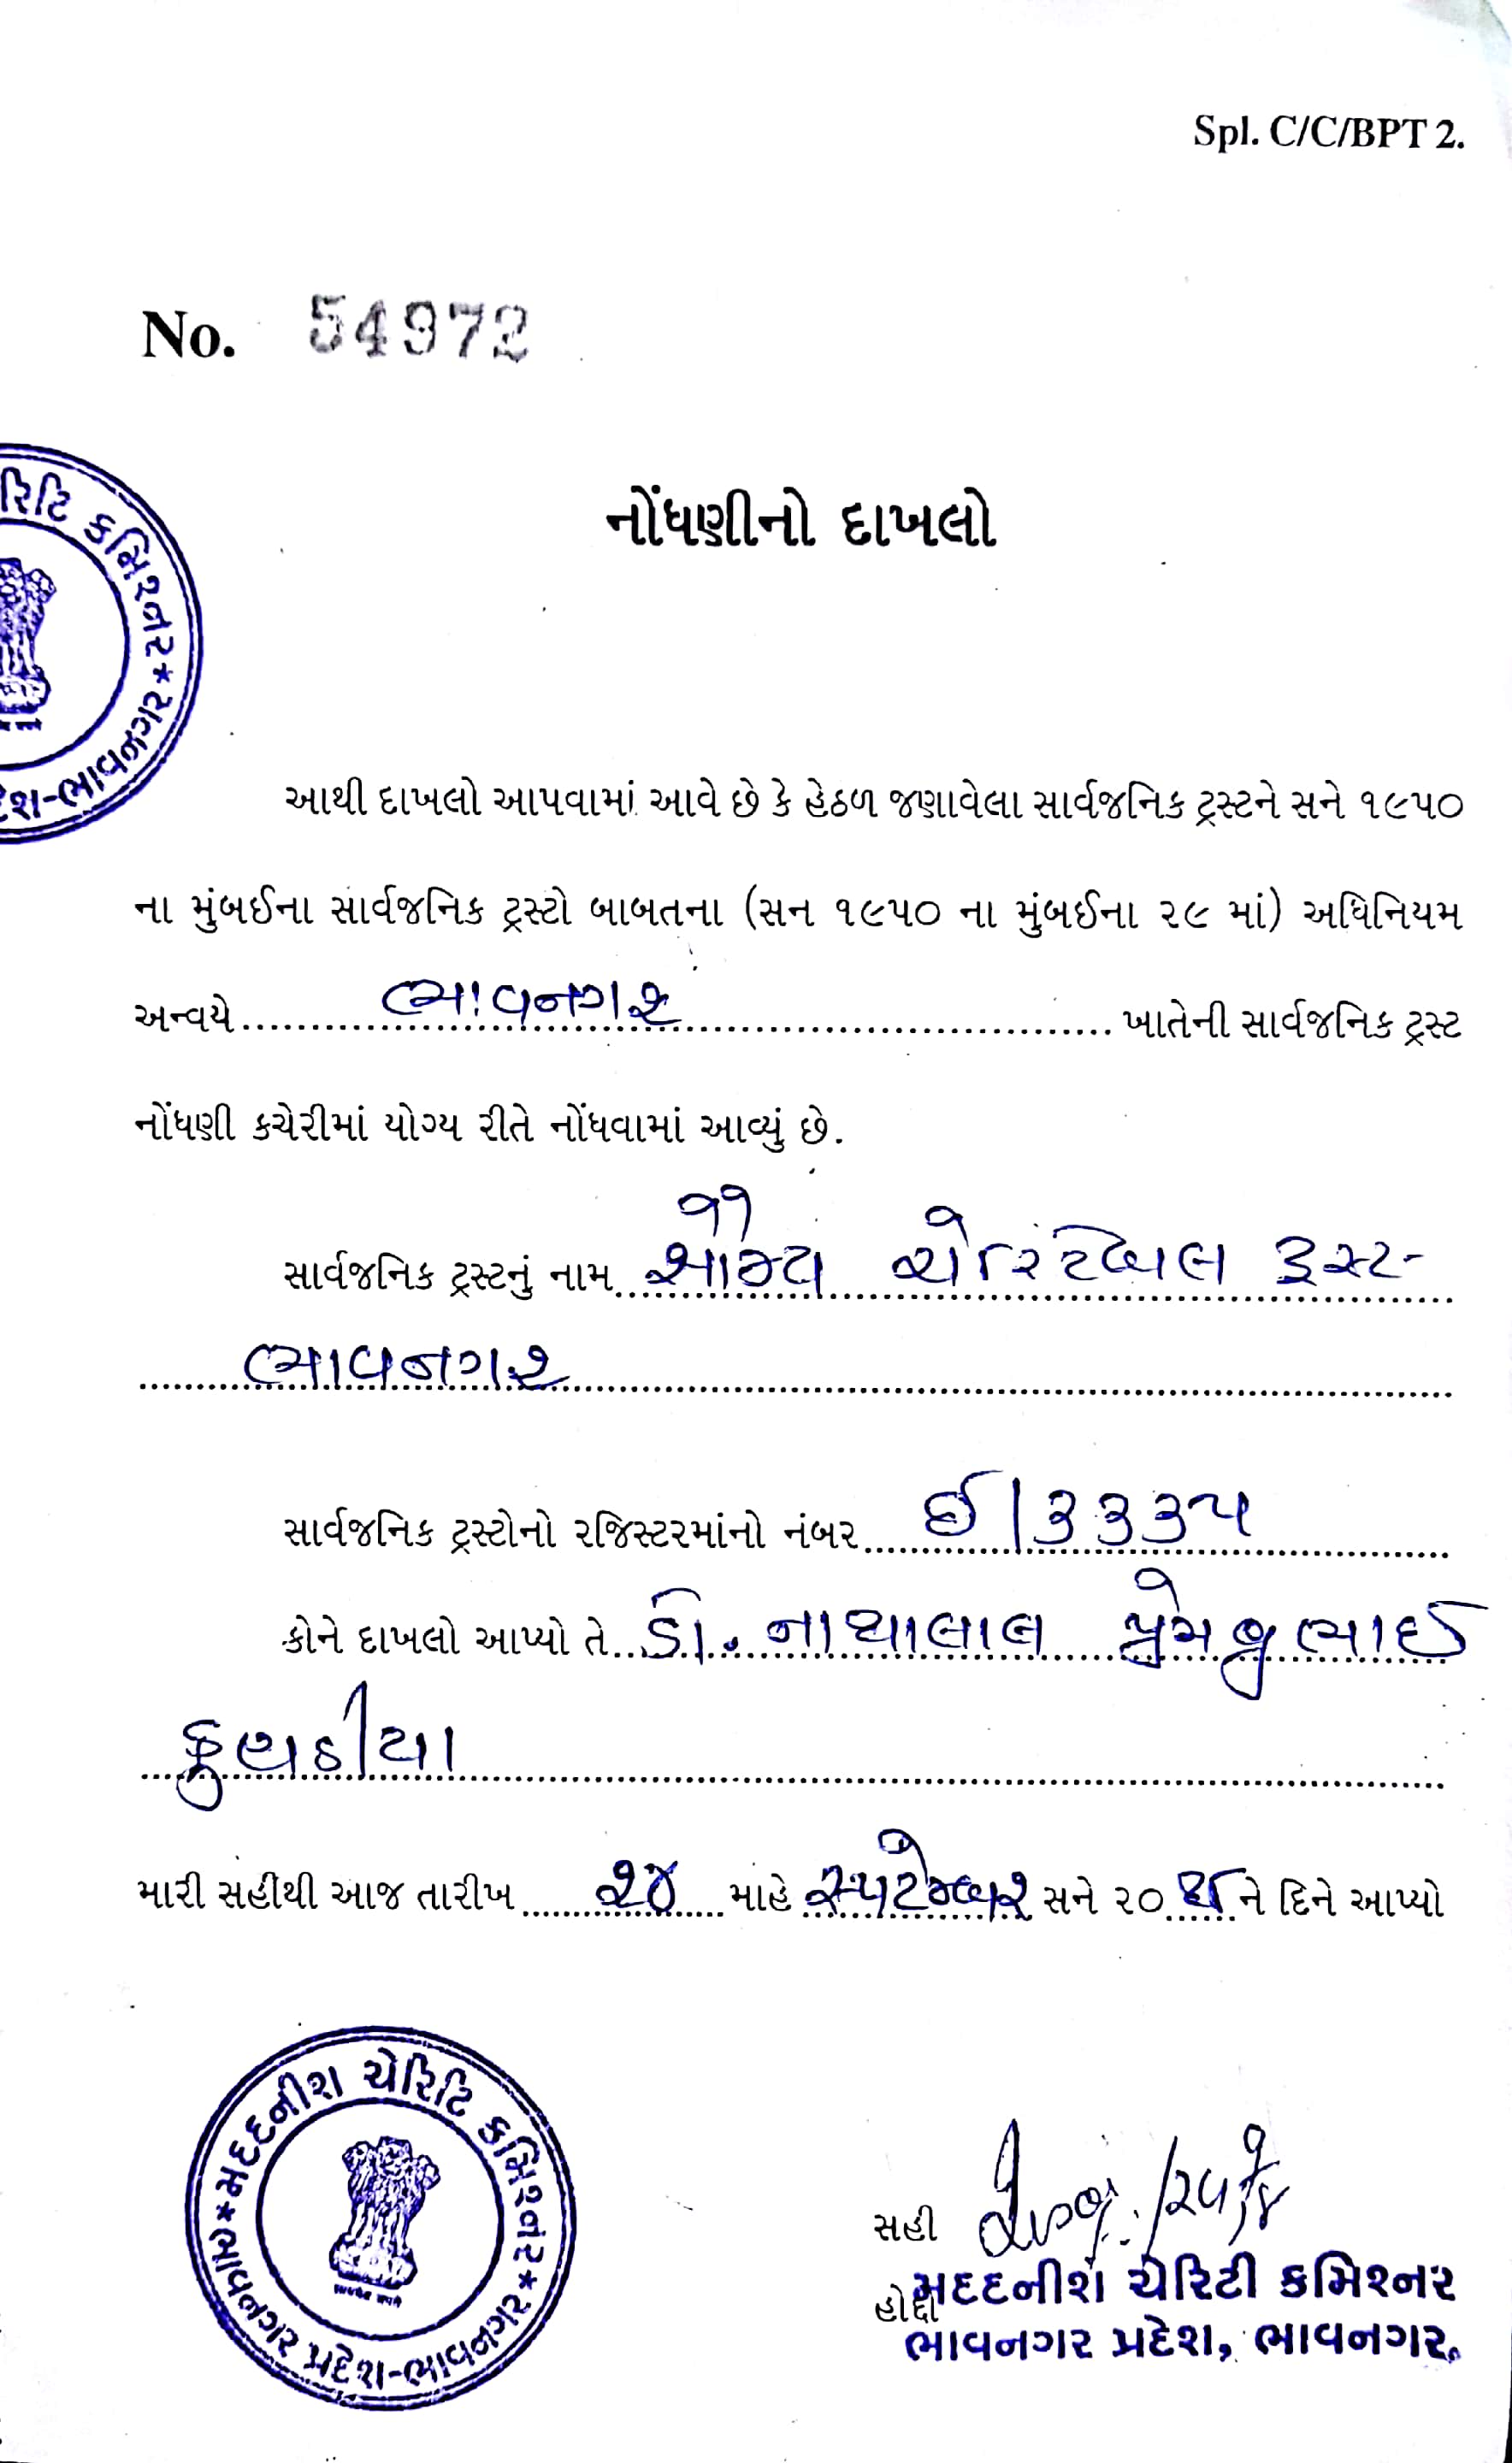 Spl. C/C/BPT 2.
No. 54972
રિટિ કમિશ્નર * ભાવનગર
દેશ-ભાવનગર
નોંધણીનો દાખલો
આથી દાખલો આપવામાં આવે છે કે હેઠળ જણાવેલા સાર્વજનિક ટ્રસ્ટને સને ૧૯૫૦
ના મુંબઈના સાર્વજનિક ટ્રસ્ટો બાબતના (સન ૧૯૫૦ ના મુંબઈના ૨૯ માં) અધિનિયમ
અન્વયે ભાવનગર ખાતેની સાર્વજનિક ટ્રસ્ટ
નોંધણી કચેરીમાં યોગ્ય રીતે નોંધવામાં આવ્યું છે.
સાર્વજનિક ટ્રસ્ટનું નામ ચેરિટેબલ ટ્રસ્ટ-
ભાવનગર
સાર્વજનિક ટ્રસ્ટોનો રજિસ્ટરમાંનો નંબર ઈ/૩૩૩૫
કોને દાખલો આપ્યો તે ડૉ. નાથાલાલ પ્રેમજીભાઈ
મારી સહીથી આજ તારીખ ૨૪ માહે સપ્ટેમ્બર સને ૨૦ ને દિને આપ્યો
મદદનીશ ચેરિટિ કમિશ્નર
* ભાવનગર પ્રદેશ-ભાવનગર *
સહી
હોદ્દો મદદનીશ ચેરિટી કમિશ્નર
ભાવનગર પ્રદેશ, ભાવનગર.